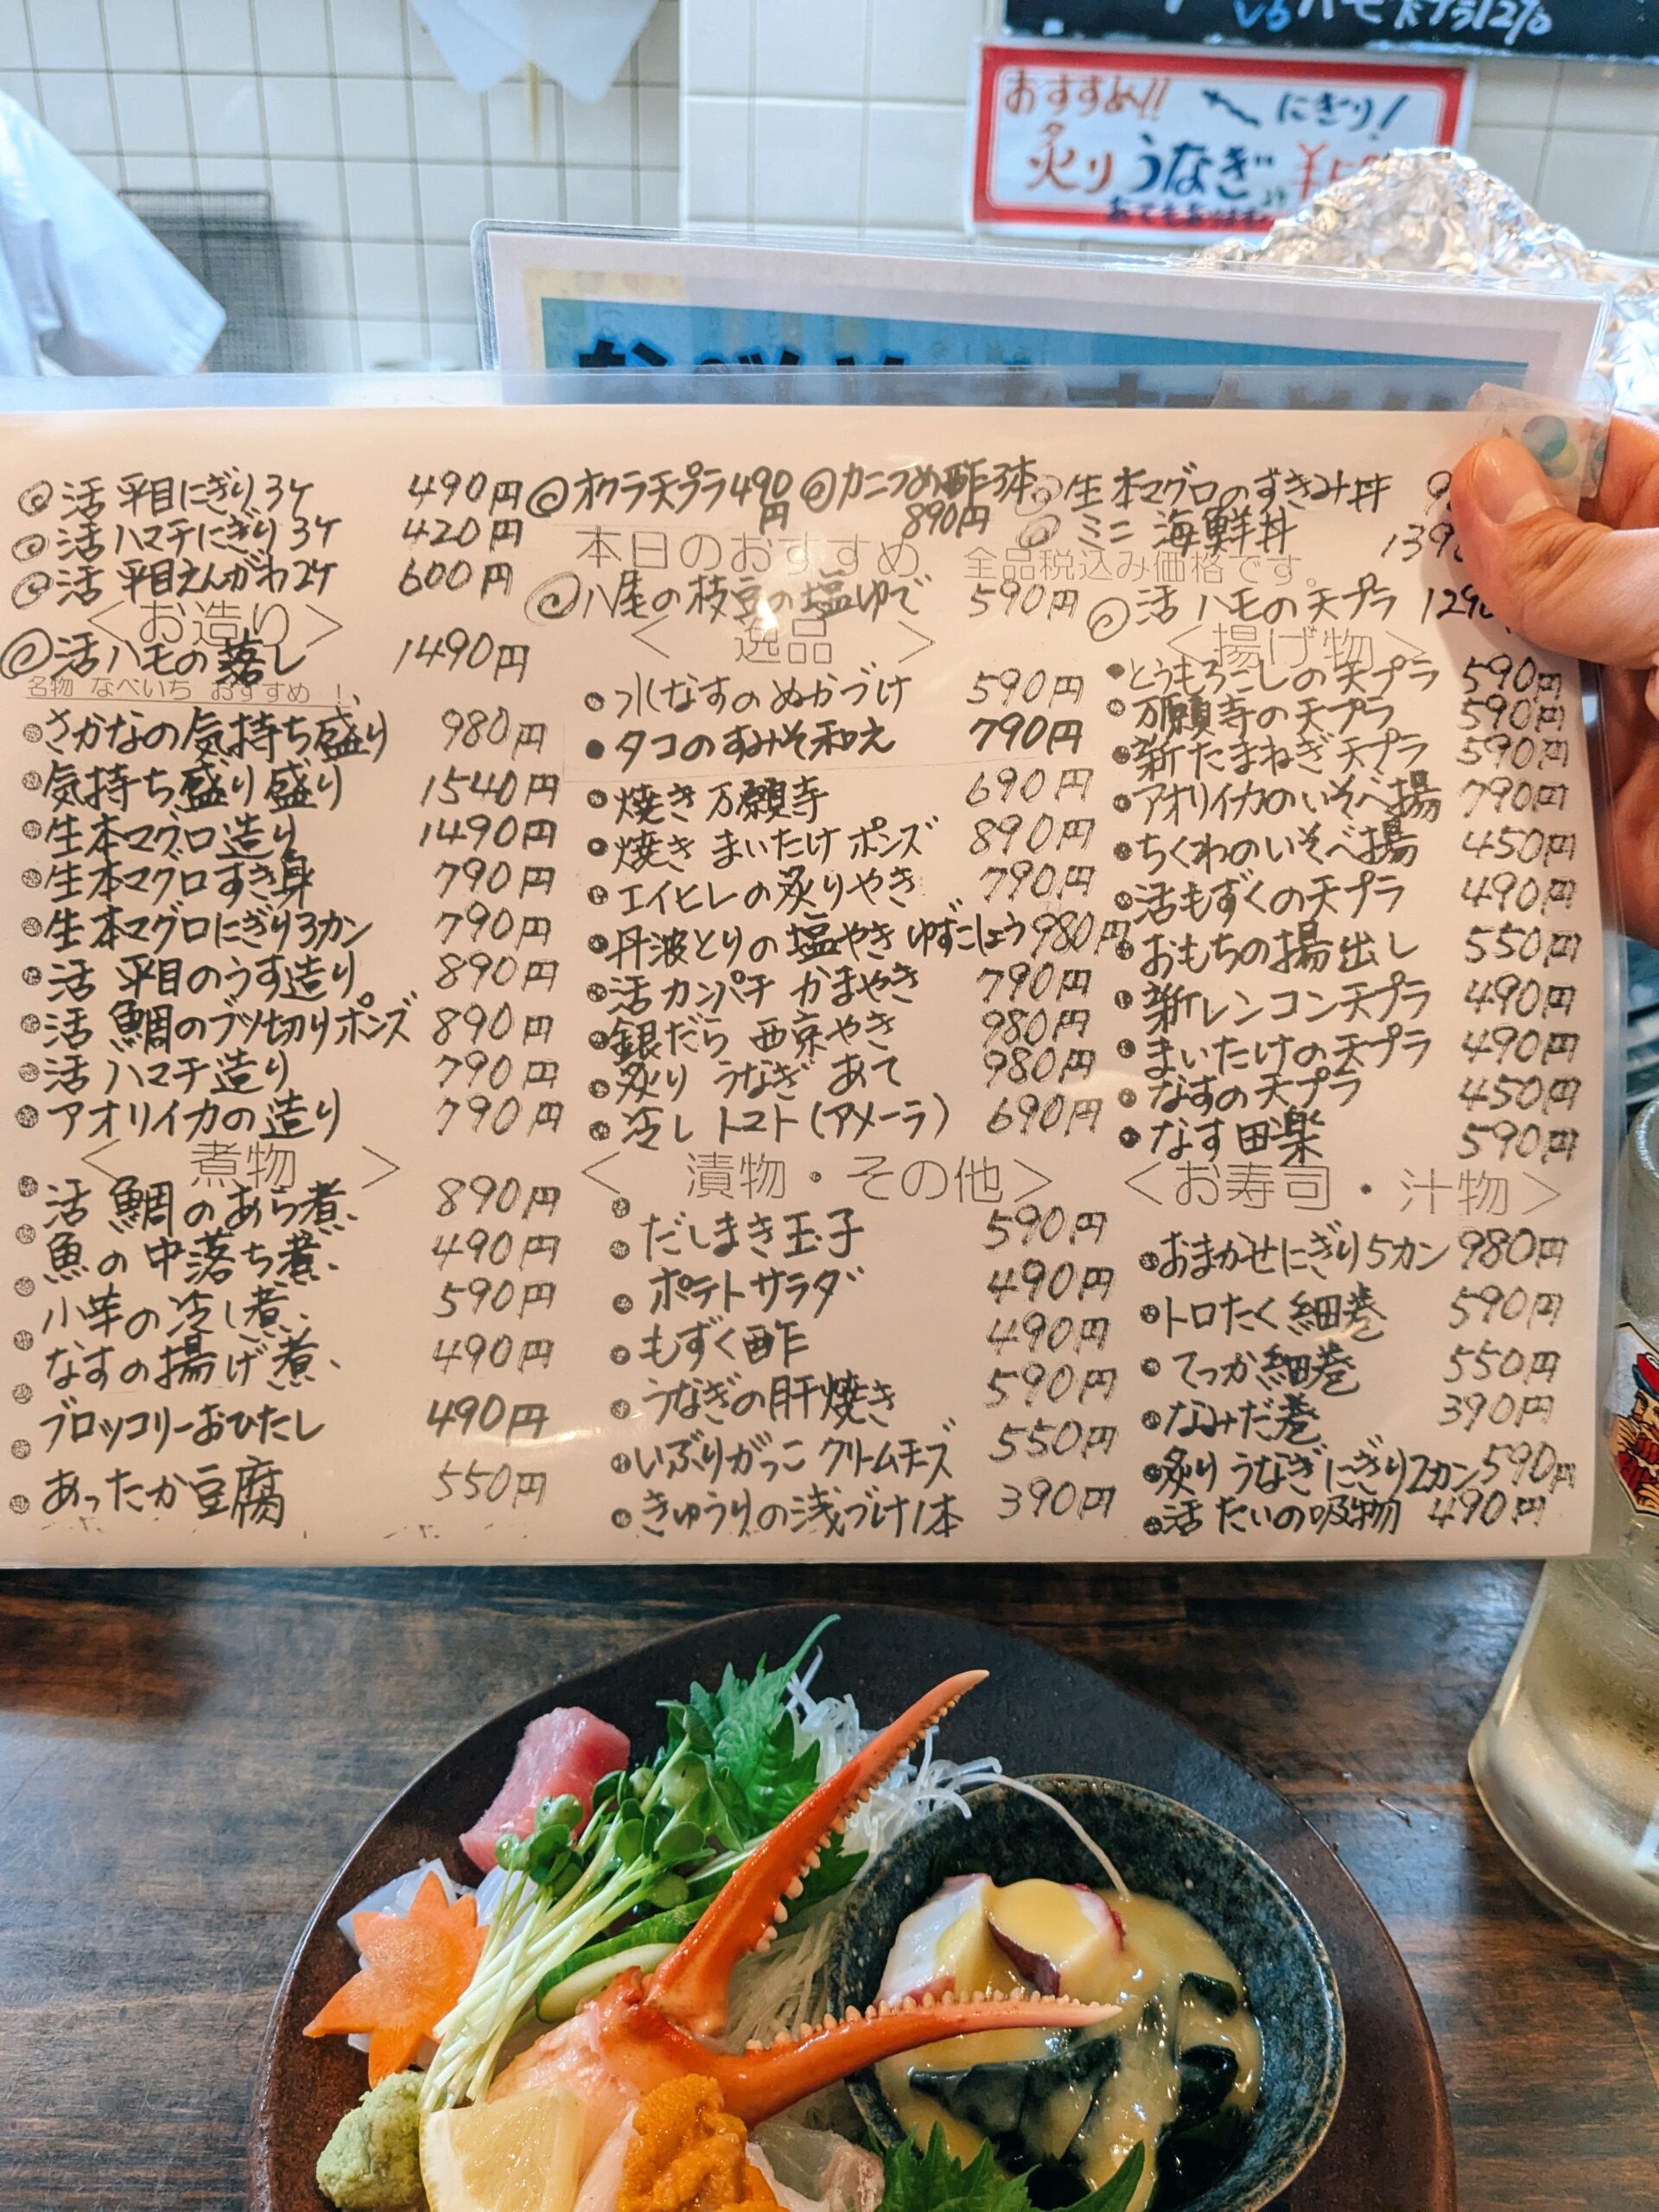 ハモ天プラ1290
おすすめ!! にぎり!
炙りうなぎ ¥5
あてもあります
◎活 平目にぎり3ケ 490円
◎活 ハマチにぎり3ケ 420円
◎活 平目えんがわ2ケ 600円
<お造り>
◎活ハモの落し 1490円
名物 なべいち おすすめ!
さかなの気持ち盛り 980円
気持ち盛り盛り 1540円
生本マグロ造り 1490円
生本マグロすき身 790円
生本マグロにぎり3カン 790円
活 平目のうす造り 890円
活 鯛のブツ切りポンズ 890円
活 ハマチ造り 790円
アオリイカの造り 790円
<煮物>
活 鯛のあら煮 890円
魚の中落ち煮 490円
小芋の冷し煮 590円
なすの揚げ煮 490円
ブロッコリーおひたし 490円
あったか豆腐 550円
◎オクラ天プラ490円
◎カニつめ酢3本 890円
本日のおすすめ 全品税込み価格です。
◎八尾の枝豆の塩ゆで 590円
<逸品>
水なすのぬかづけ 590円
タコのすみそ和え 790円
焼き万願寺 690円
焼き まいたけ ポンズ 890円
エイヒレの炙りやき 790円
丹波とりの塩やき ゆずこしょう 980円
活カンパチ かまやき 790円
銀だら 西京やき 980円
炙り うなぎ あて 980円
冷し トマト(アメーラ) 690円
<漬物・その他>
だしまき玉子 590円
ポテトサラダ 490円
もずく酢 490円
うなぎの肝焼き 590円
いぶりがっこ クリームチーズ 550円
きゅうりの浅づけ1本 390円
◎生本マグロのすきみ丼 9
◎ミニ 海鮮丼 139
◎活 ハモの天プラ 129
<揚げ物>
とうもろこしの天プラ 590円
万願寺の天プラ 590円
新たまねぎ天プラ 590円
アオリイカのいそべ揚 790円
ちくわのいそべ揚 450円
活もずくの天プラ 490円
おもちの揚出し 550円
新レンコン天プラ 490円
まいたけの天プラ 490円
なすの天プラ 450円
なす田楽 590円
<お寿司・汁物>
おまかせにぎり5カン 980円
トロたく細巻 590円
てっか細巻 550円
なみだ巻 390円
炙り うなぎにぎり2カン 590円
活 たいの吸物 490円